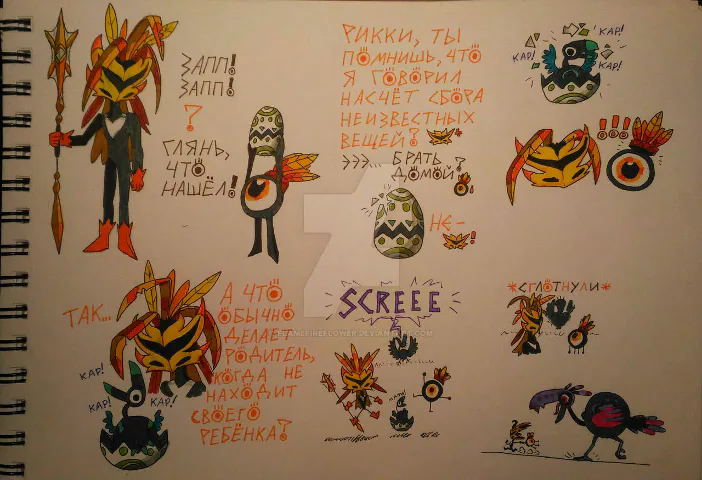 ЗАПП!
ЗАПП!
?
ГЛЯНЬ,
ЧТО
НАШЁЛ!
РИККИ, ТЫ
ПОМНИШЬ, ЧТО
Я ГОВОРИЛ
НАСЧЁТ СБОРА
НЕИЗВЕСТНЫХ
ВЕЩЕЙ?
ЭЭЭ... БРАТЬ
ДОМОЙ?
НЕ-
!
КАР!
КАР!
КАР!
!!!
ТАК...
КАР!
КАР!
КАР!
А ЧТО
ОБЫЧНО
ДЕЛАЕТ
РОДИТЕЛЬ,
КОГДА НЕ
НАХОДИТ
СВОЕГО
РЕБЁНКА?
SCREEE
*СГЛОТНУЛИ*